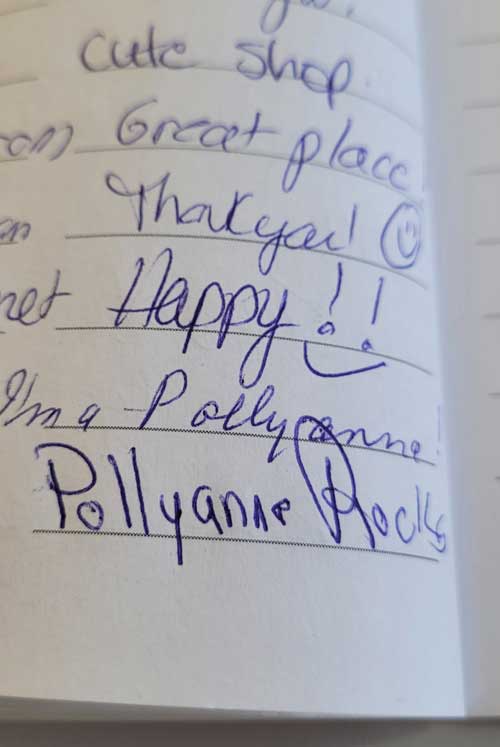 cute shop.
Great place!
Thankyou!
net Happy!!
I'm a Pollyanne!
Pollyanne Rocks